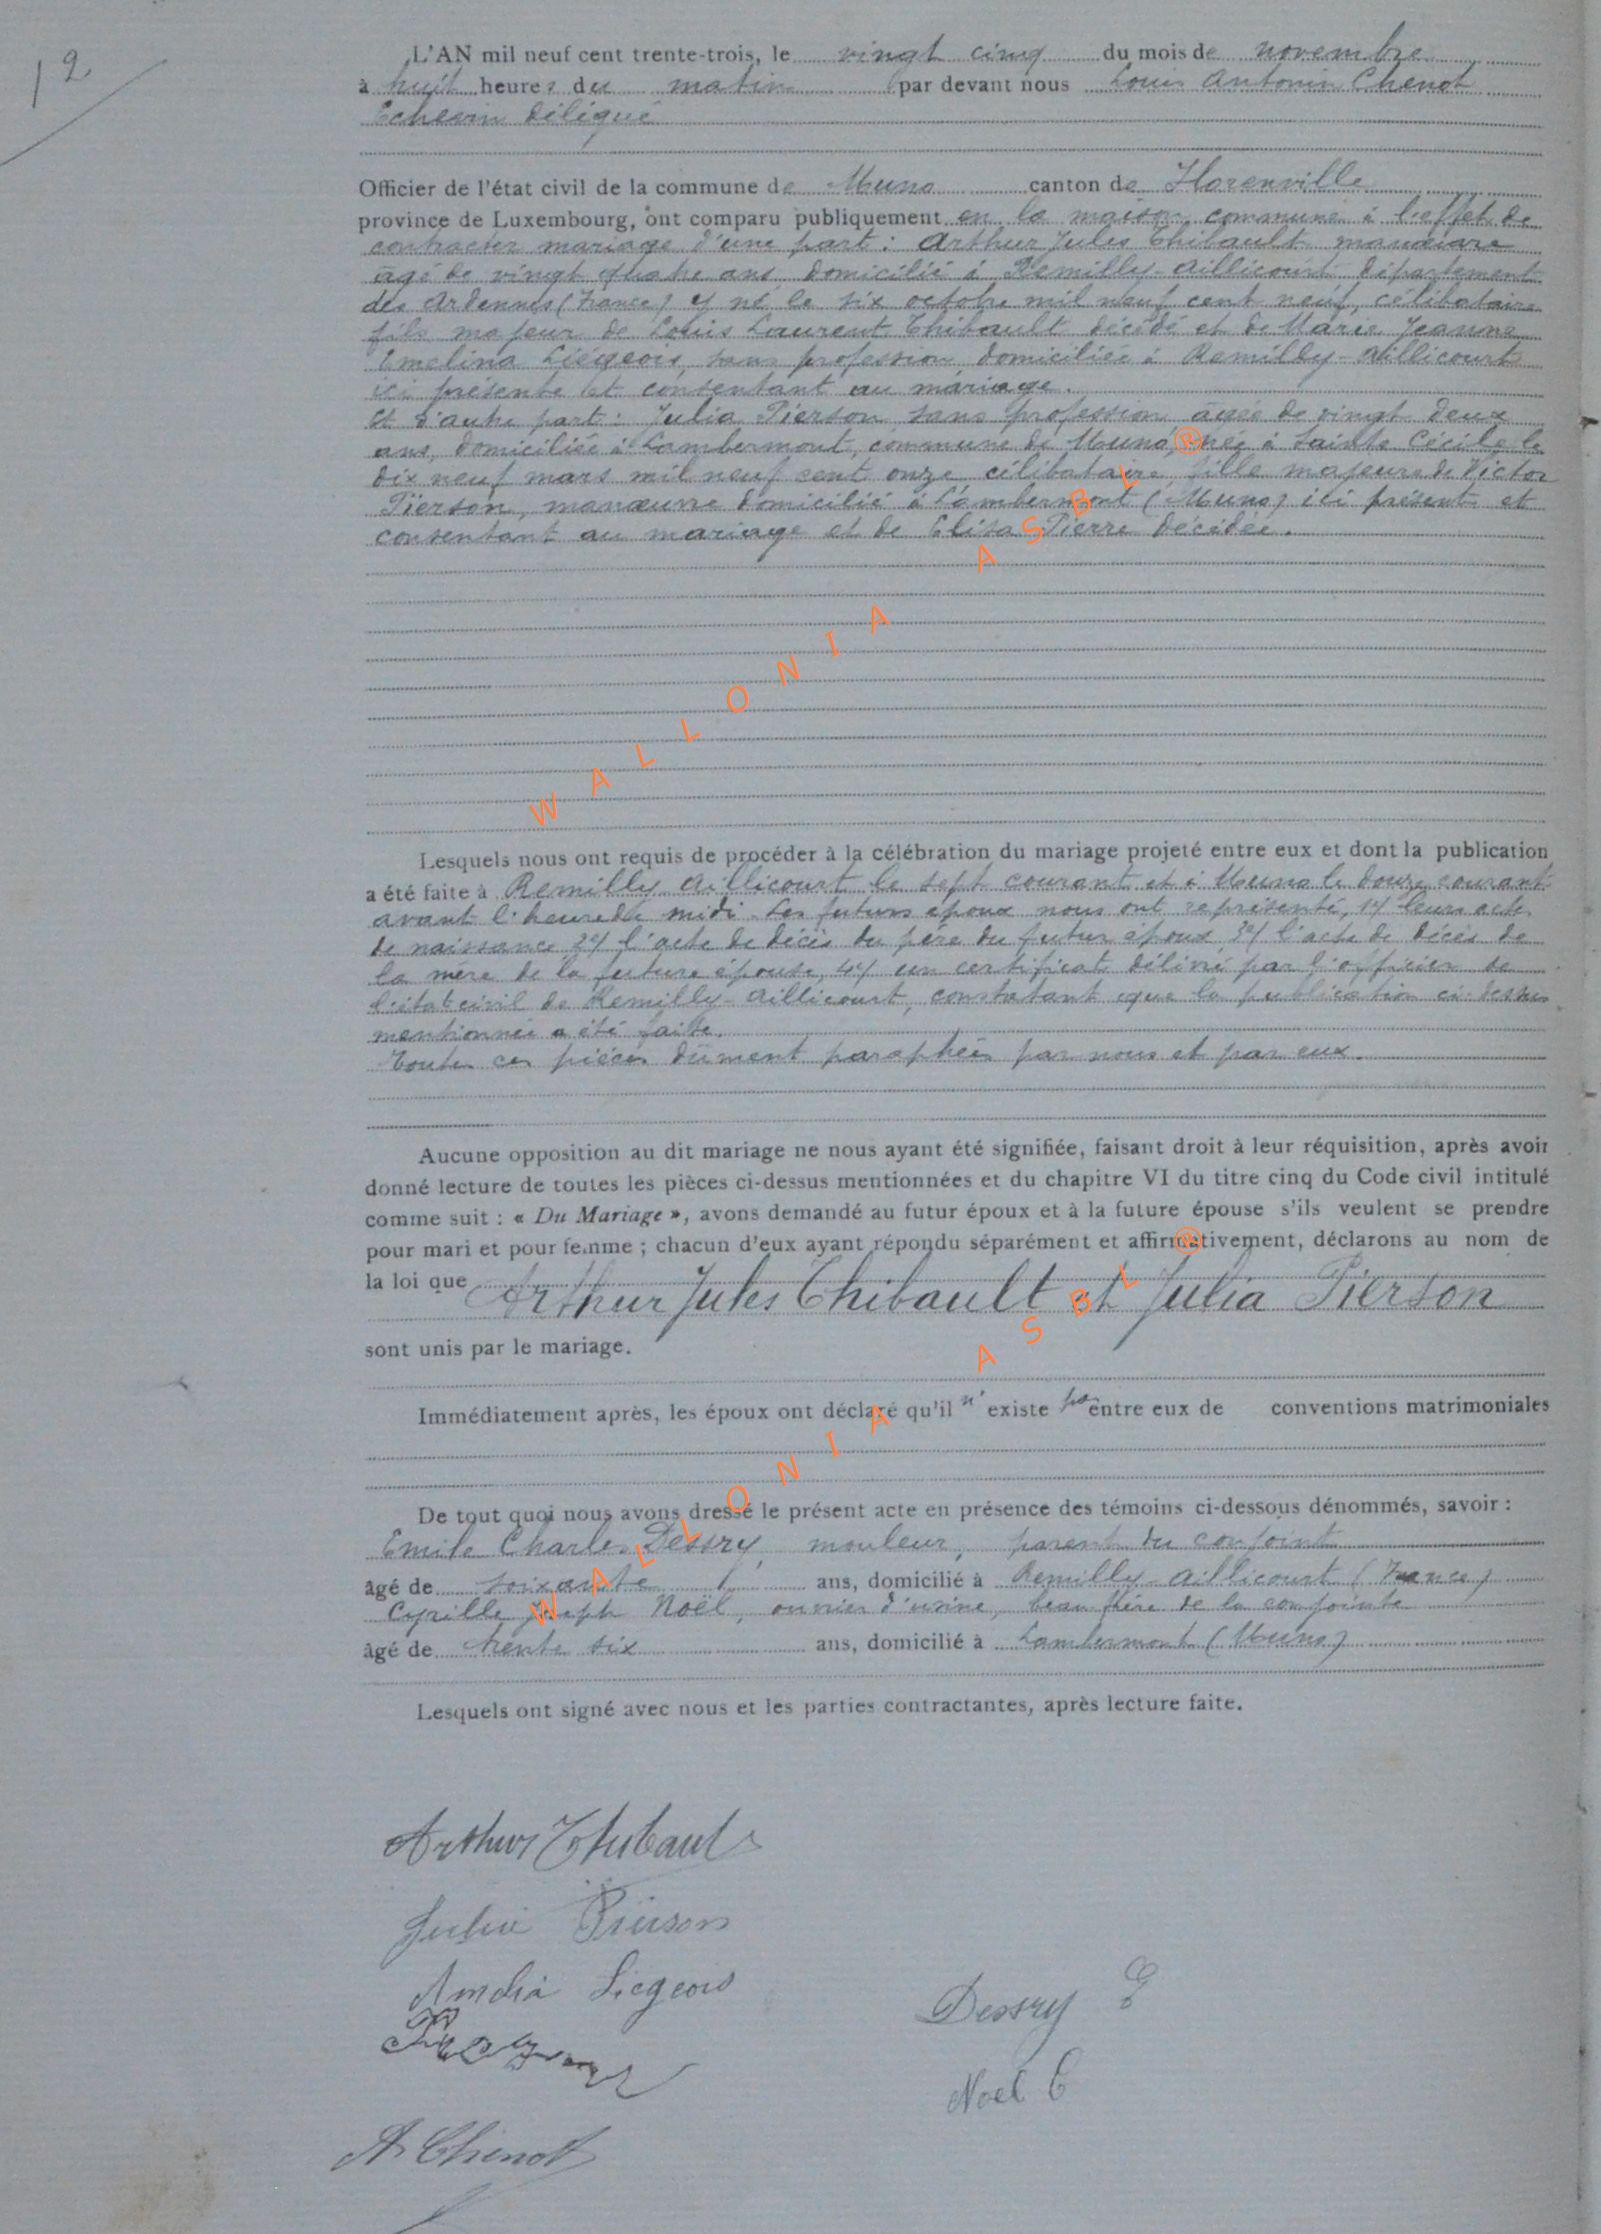 12
L'AN mil neuf cent trente-trois, le vingt cinq du mois de novembre
à huit heures du matin par devant nous Louis Antonin Chenot
Echevin délégué
Officier de l'état civil de la commune de Muno canton de Florenville
province de Luxembourg, ont comparu publiquement en la maison commune à l'effet de
contracter mariage d'une part : Arthur Jules Thibault manœuvre
âgé de vingt quatre ans domicilié à Remilly-Aillicourt département
des Ardennes (France) y né le six octobre mil neuf cent neuf, célibataire
fils majeur de Louis Laurent Thibault décédé et de Marie Jeanne
Emelina Liégeois, sans profession domiciliée à Remilly-Aillicourt
ici présente et consentant au mariage.
et d'autre part : Julia Pierson sans profession âgée de vingt deux
ans, domiciliée à Lambermont, commune de Muno, née à Sainte Cécile le
dix neuf mars mil neuf cent onze célibataire, fille majeure de Victor
Pierson, manœuvre domicilié à Lambermont (Muno) ici présent et
consentant au mariage et de Elisa Pierre décédée.
Lesquels nous ont requis de procéder à la célébration du mariage projeté entre eux et dont la publication
a été faite à Remilly Aillicourt le sept courant et à Muno le douze courant
avant l'heure de midi. Les futurs époux nous ont représenté, 1°/ leurs actes
de naissance 2°/ l'acte de décès du père du futur époux 3°/ l'acte de décès de
la mère de la future épouse, 4°/ un certificat délivré par l'officier de
l'état civil de Remilly-Aillicourt, constatant que la publication ci-dessus
mentionnée a été faite.
Toutes ces pièces dûment paraphées par nous et par eux.
Aucune opposition au dit mariage ne nous ayant été signifiée, faisant droit à leur réquisition, après avoir
donné lecture de toutes les pièces ci-dessus mentionnées et du chapitre VI du titre cinq du Code civil intitulé
comme suit : « Du Mariage », avons demandé au futur époux et à la future épouse s'ils veulent se prendre
pour mari et pour femme ; chacun d'eux ayant répondu séparément et affirmativement, déclarons au nom de
la loi que Arthur Jules Thibault et Julia Pierson
sont unis par le mariage.
Immédiatement après, les époux ont déclaré qu'il n'existe pas entre eux de conventions matrimoniales
De tout quoi nous avons dressé le présent acte en présence des témoins ci-dessous dénommés, savoir :
Emile Charles Dessry, mouleur, parent du conjoint
âgé de soixante ans, domicilié à Remilly-Aillicourt (France)
Cyrille Joseph Noël, ouvrier d'usine, beau frère de la conjointe
âgé de trente six ans, domicilié à Lambermont (Muno)
Lesquels ont signé avec nous et les parties contractantes, après lecture faite.
Arthur Thibault
Julia Pierson
Amelia Liegeois
Dessry E
Noel C
A. Chenot
WALLONIA ASBL ®
WALLONIA ASBL ®